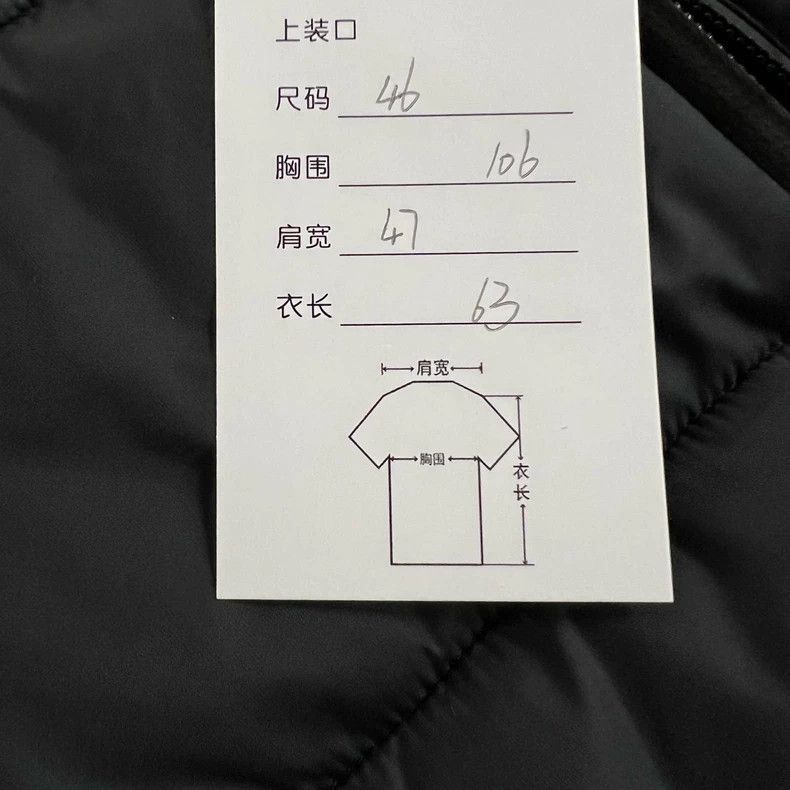 上装口
尺码 46
胸围 106
肩宽 47
衣长 63
肩宽
胸围
衣长